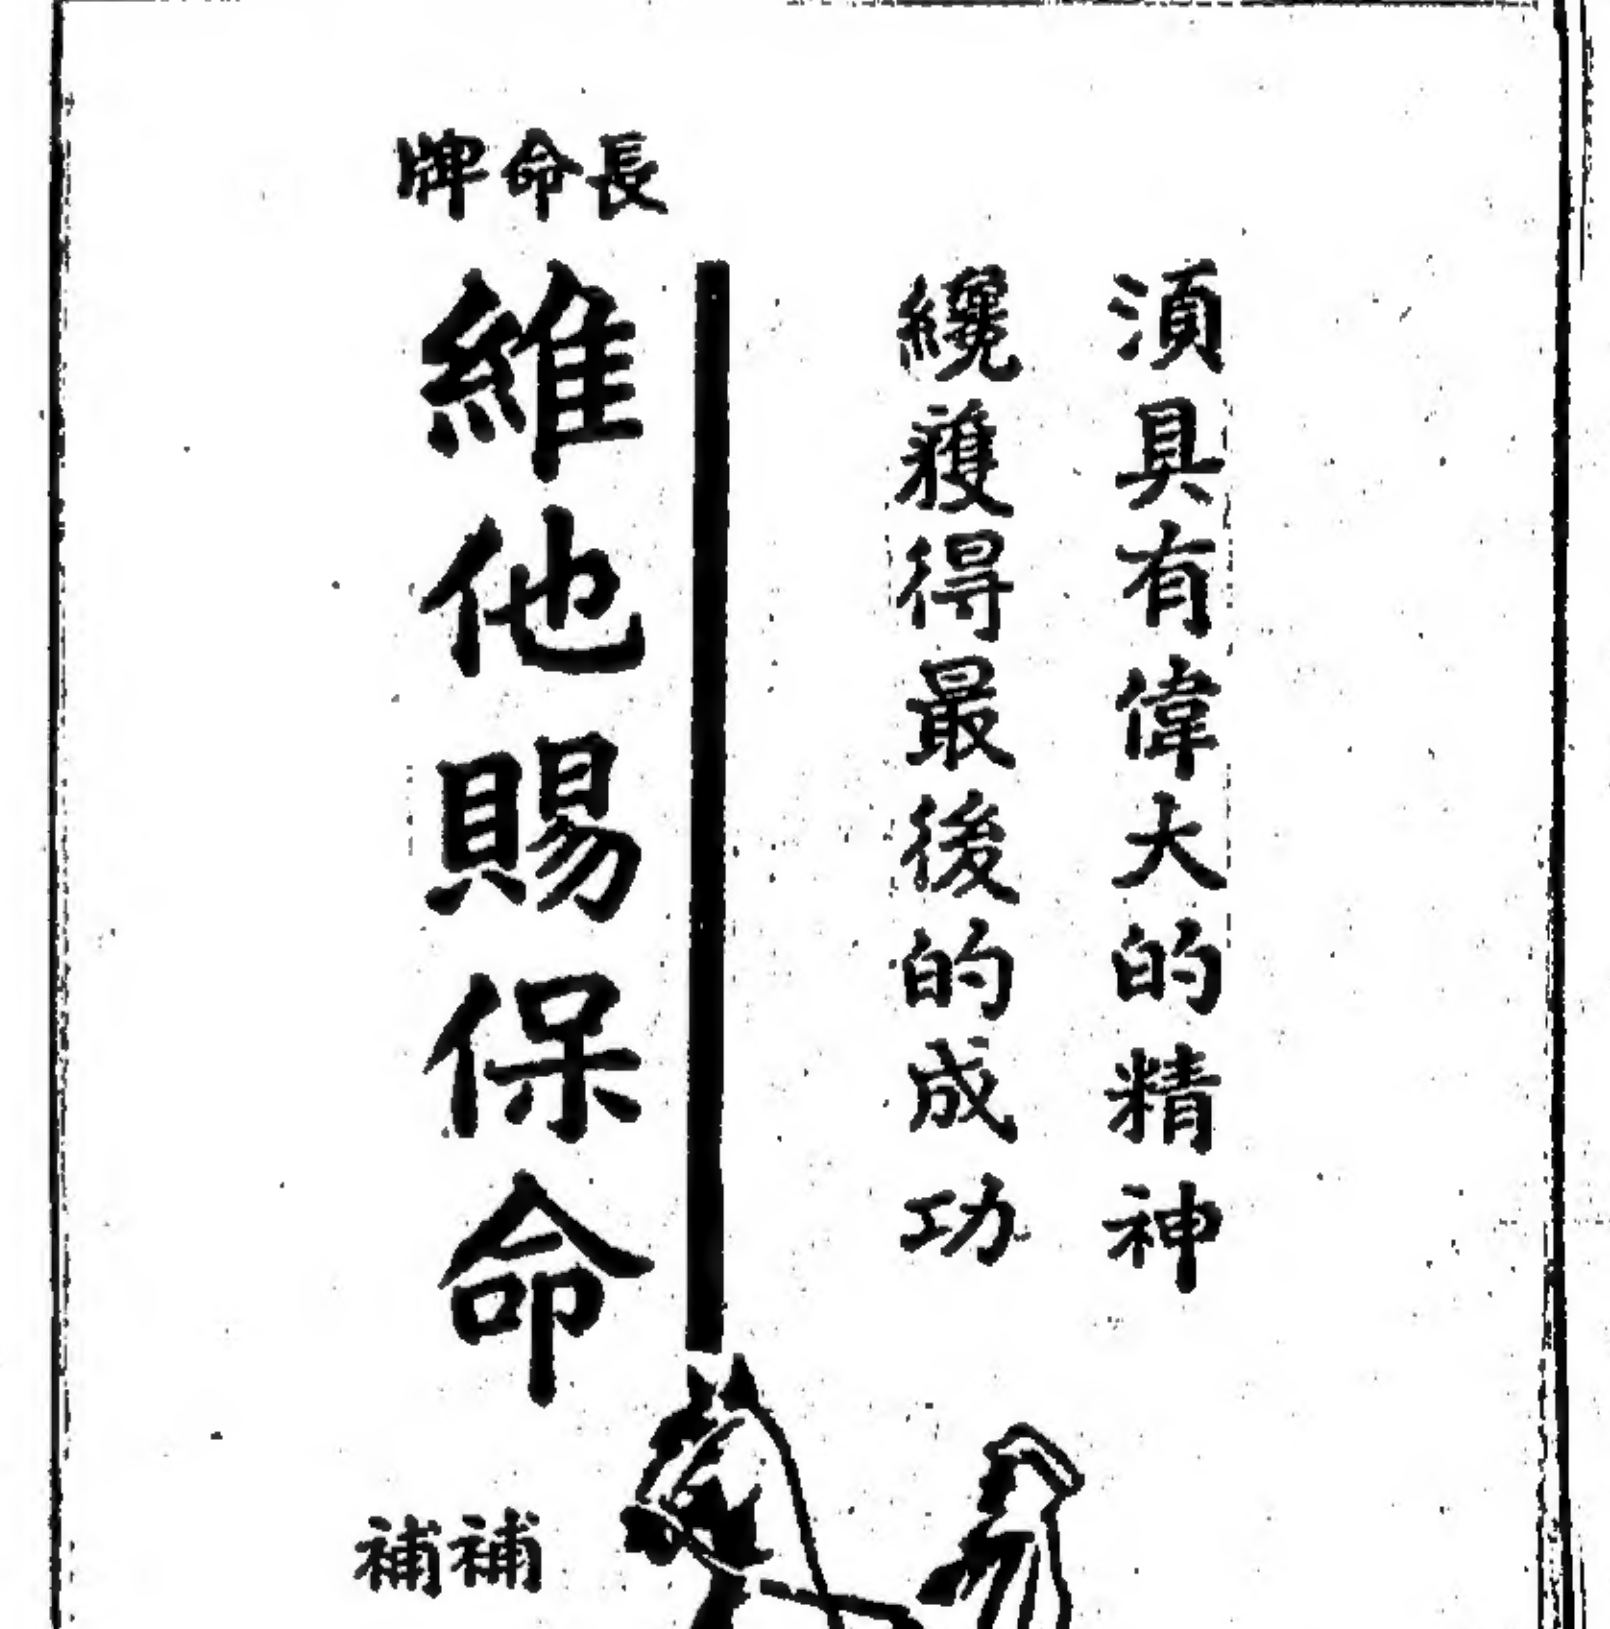 須具有偉大的精神
纔獲得最後的成功
長命牌
維他賜保命
補
補